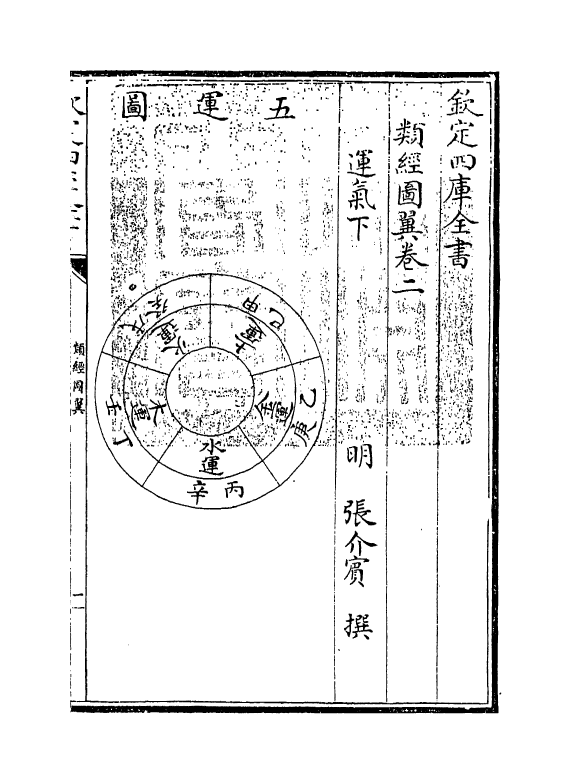 欽定四庫全書
類經圖翼卷二
運氣下
明 張介賓 撰
五運圖
甲己
土運
乙庚
金運
丙辛
水運
丁壬
木運
戊癸
火運
類經圖翼